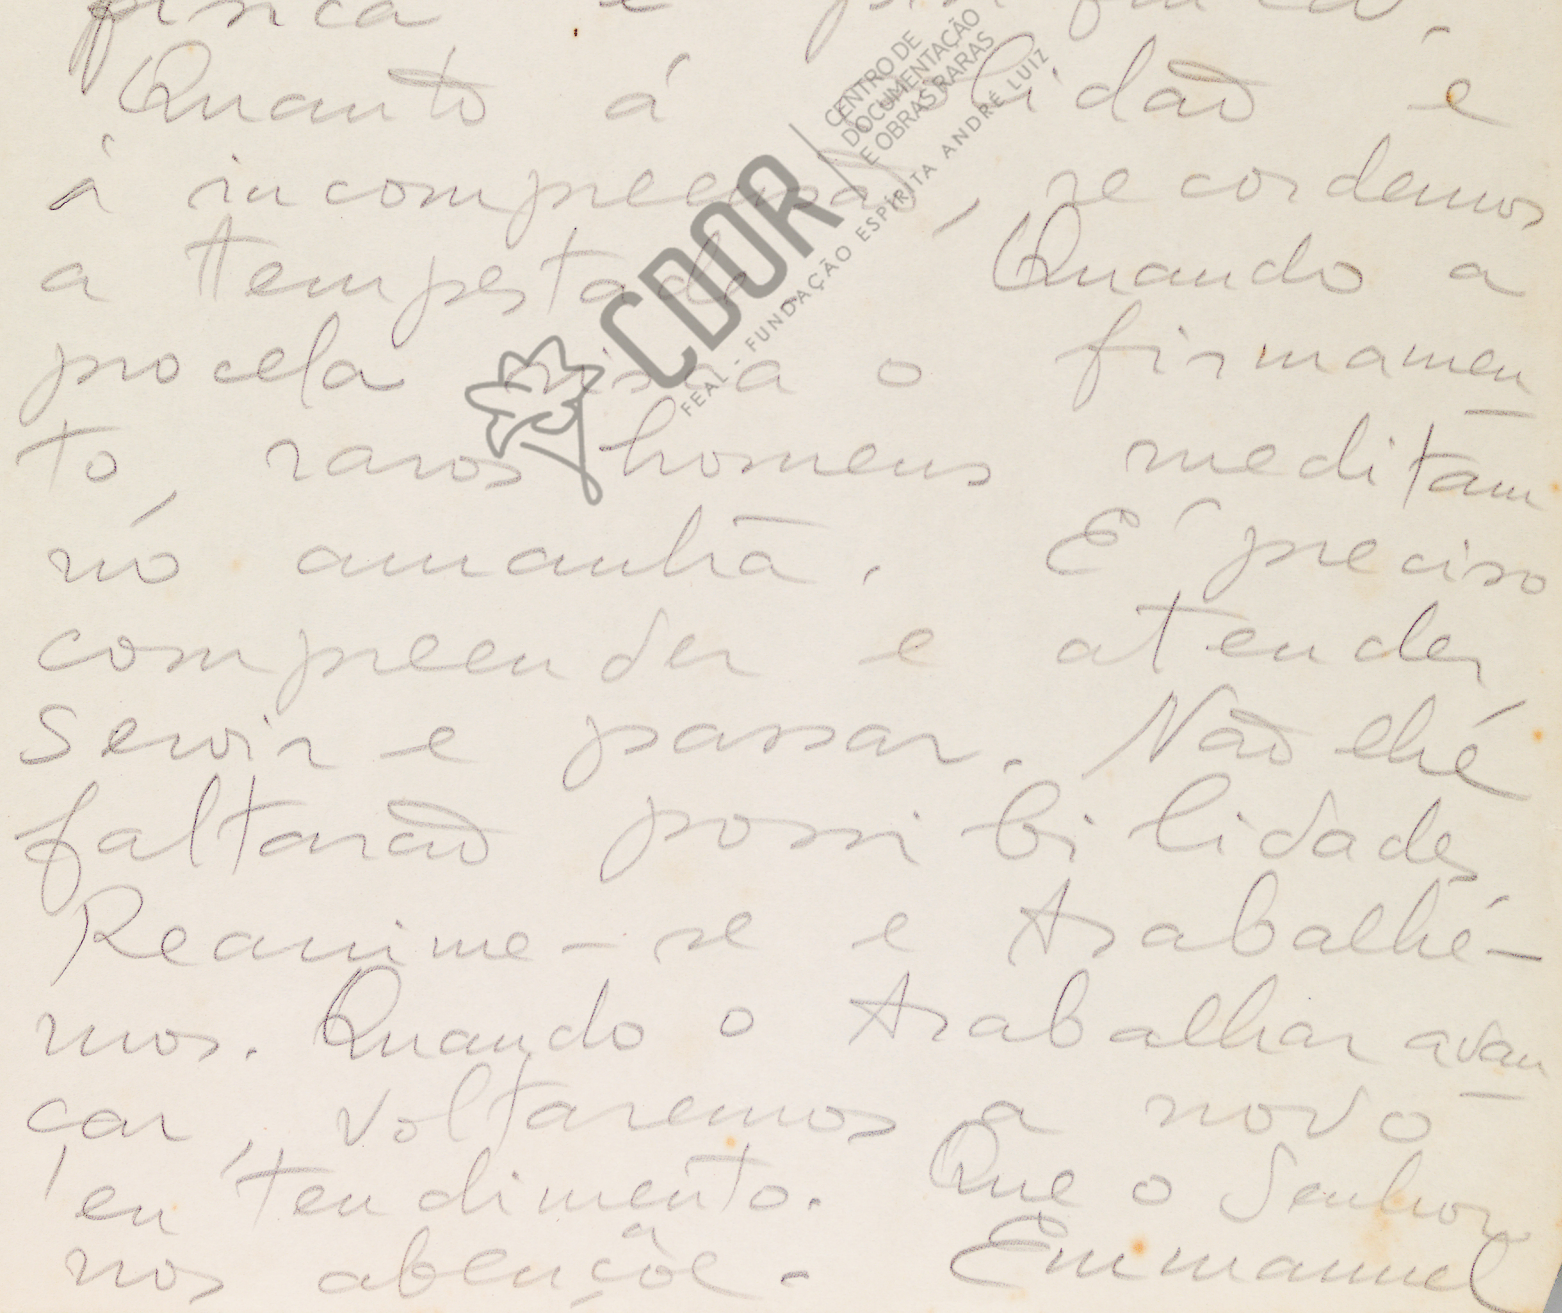 física e
Quanto á solidão e
á incompreensão, recordemos
a tempestade. Quando a
procela risca o firmamen
to, raros homens meditam
no amanhã. É preciso
compreender e atender,
servir e passar. Não lhe
faltarão possibilidades.
Reanime-se e trabalhe-
mos. Quando o trabalhar avan
çar, voltaremos a novo
entendimento. Que o Senhor
nos abençõe. Emmanuel
CDOR
CENTRO DE
DOCUMENTAÇÃO
E OBRAS RARAS
FEAL - FUNDAÇÃO ESPÍRITA ANDRÉ LUIZ